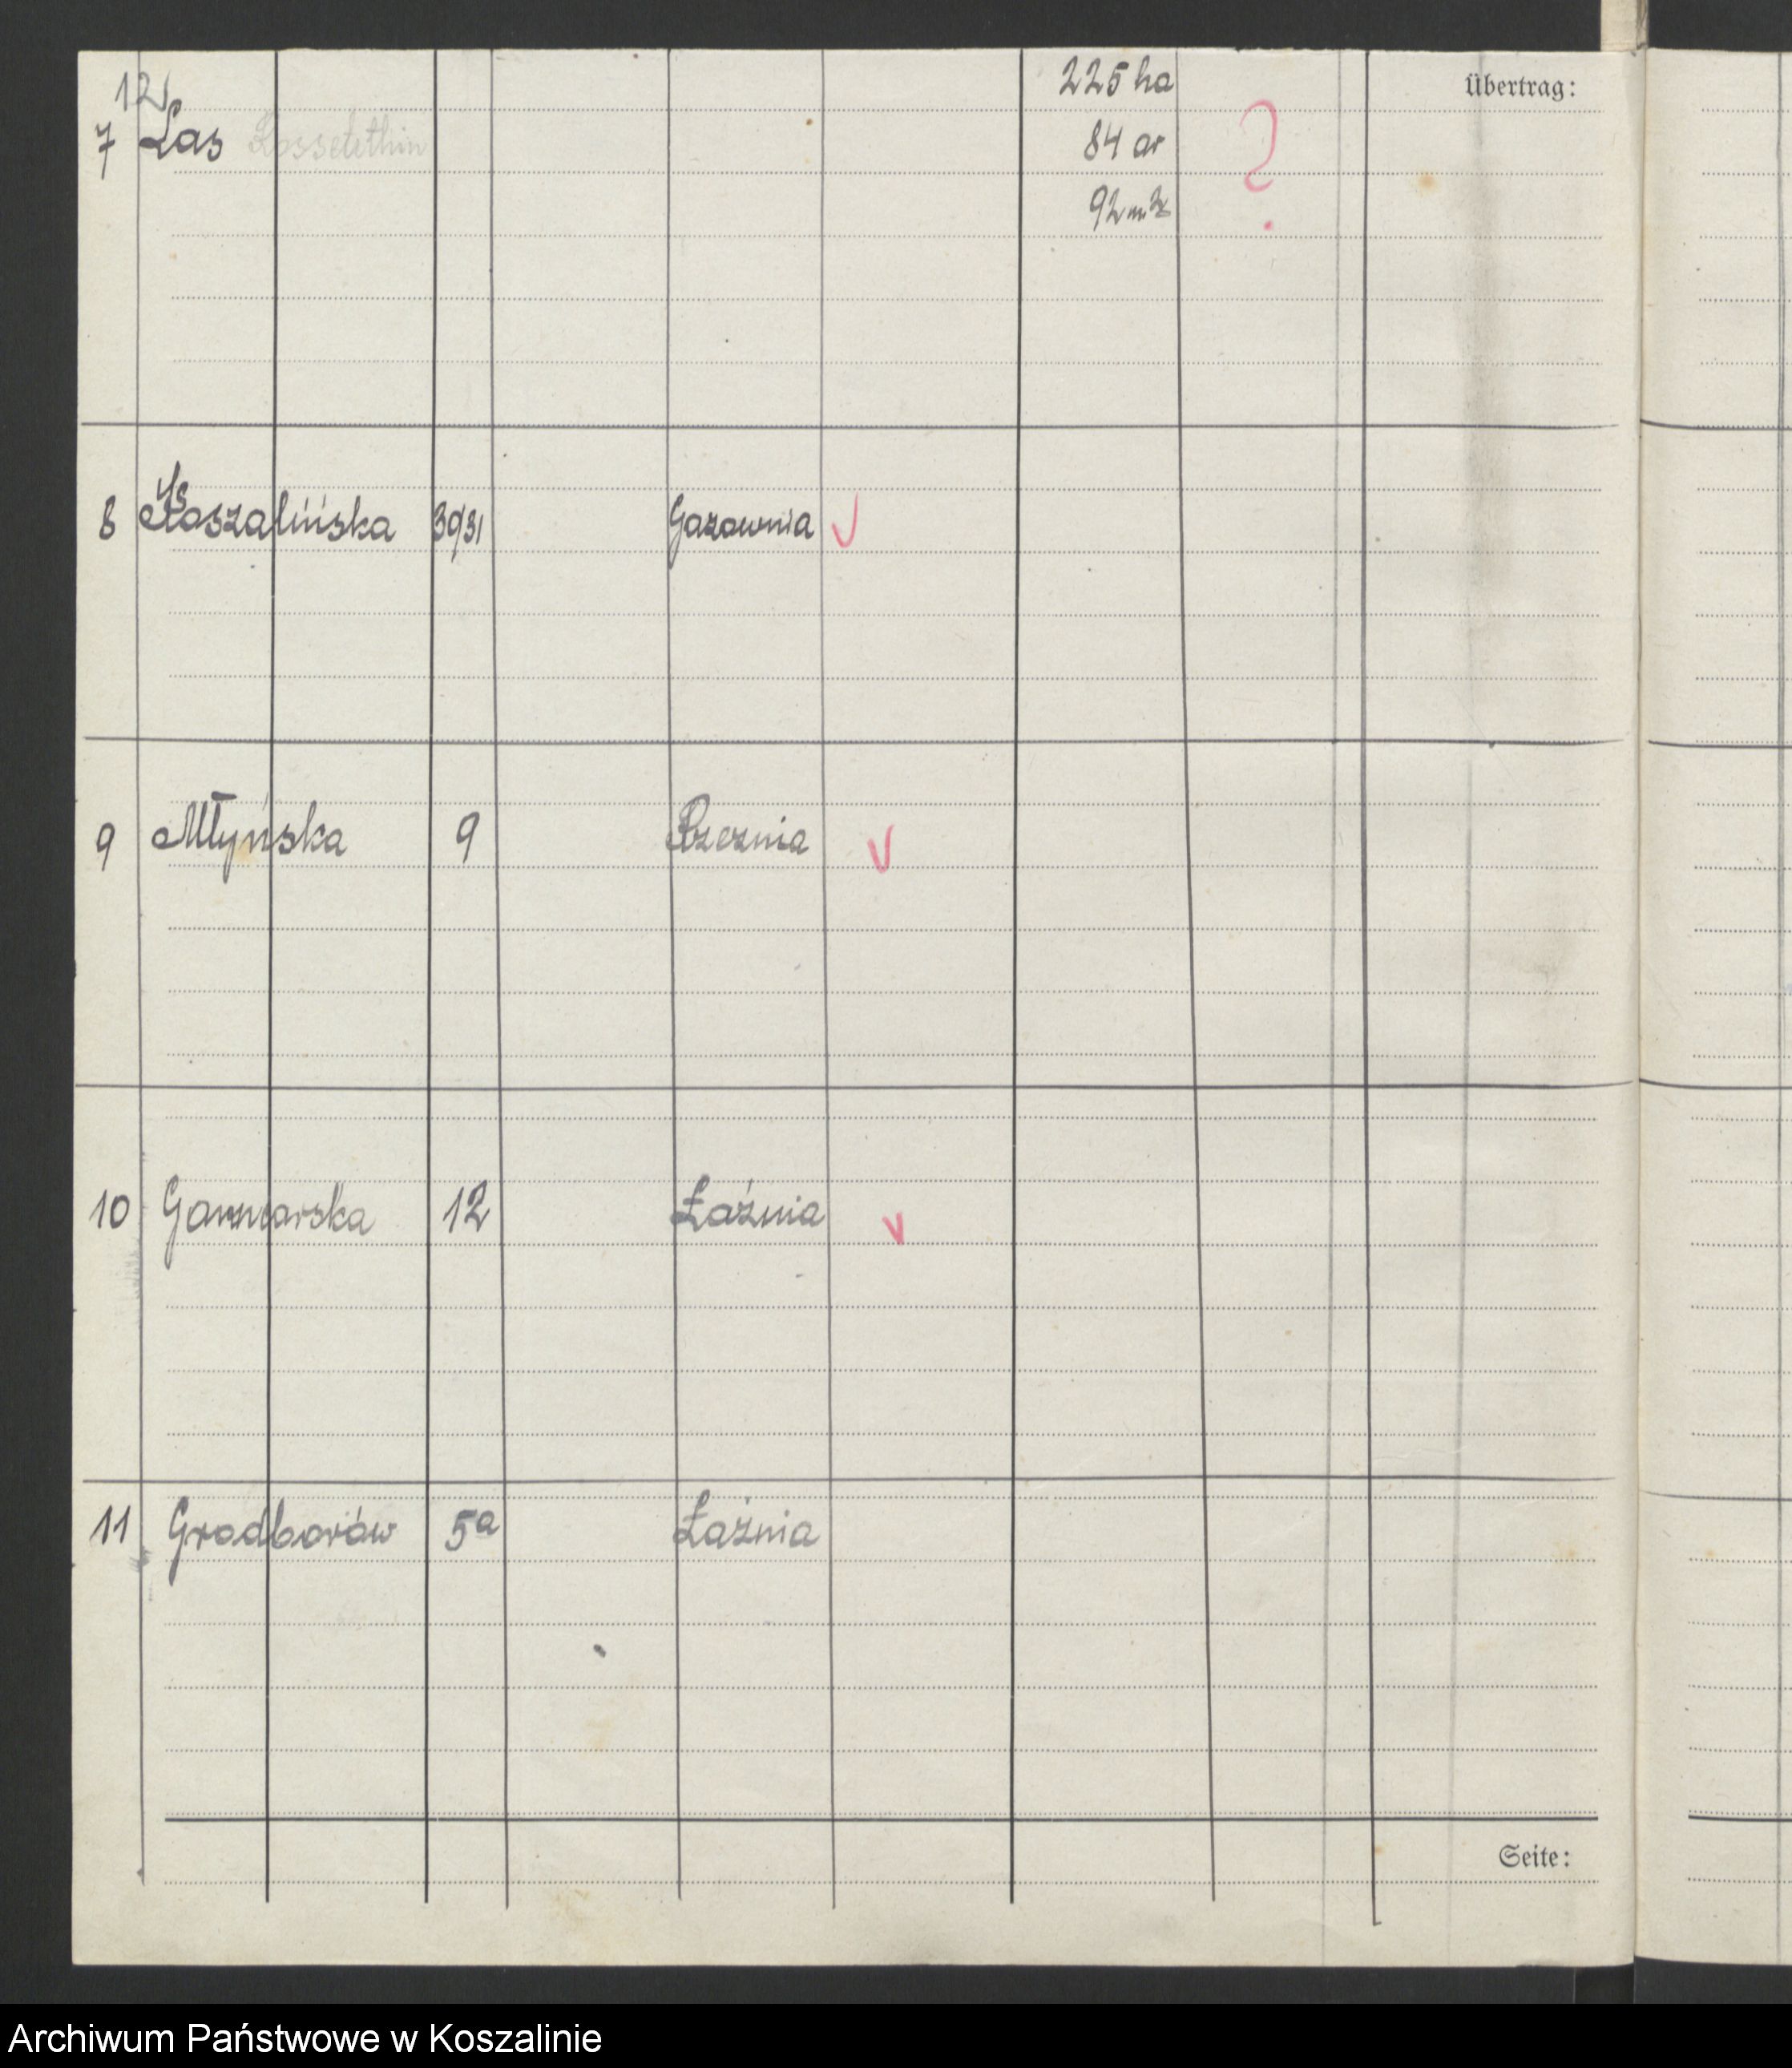 12
225 ha
Übertrag:
7 Las 84 ar ?
92 m2
8 Koszalińska 30/31 Gazownia
9 Młyńska 9 Rzeznia
10 Garncarska 12 Łaźnia
11 Grodborów 5a Łaźnia
Seite:
Archiwum Państwowe w Koszalinie